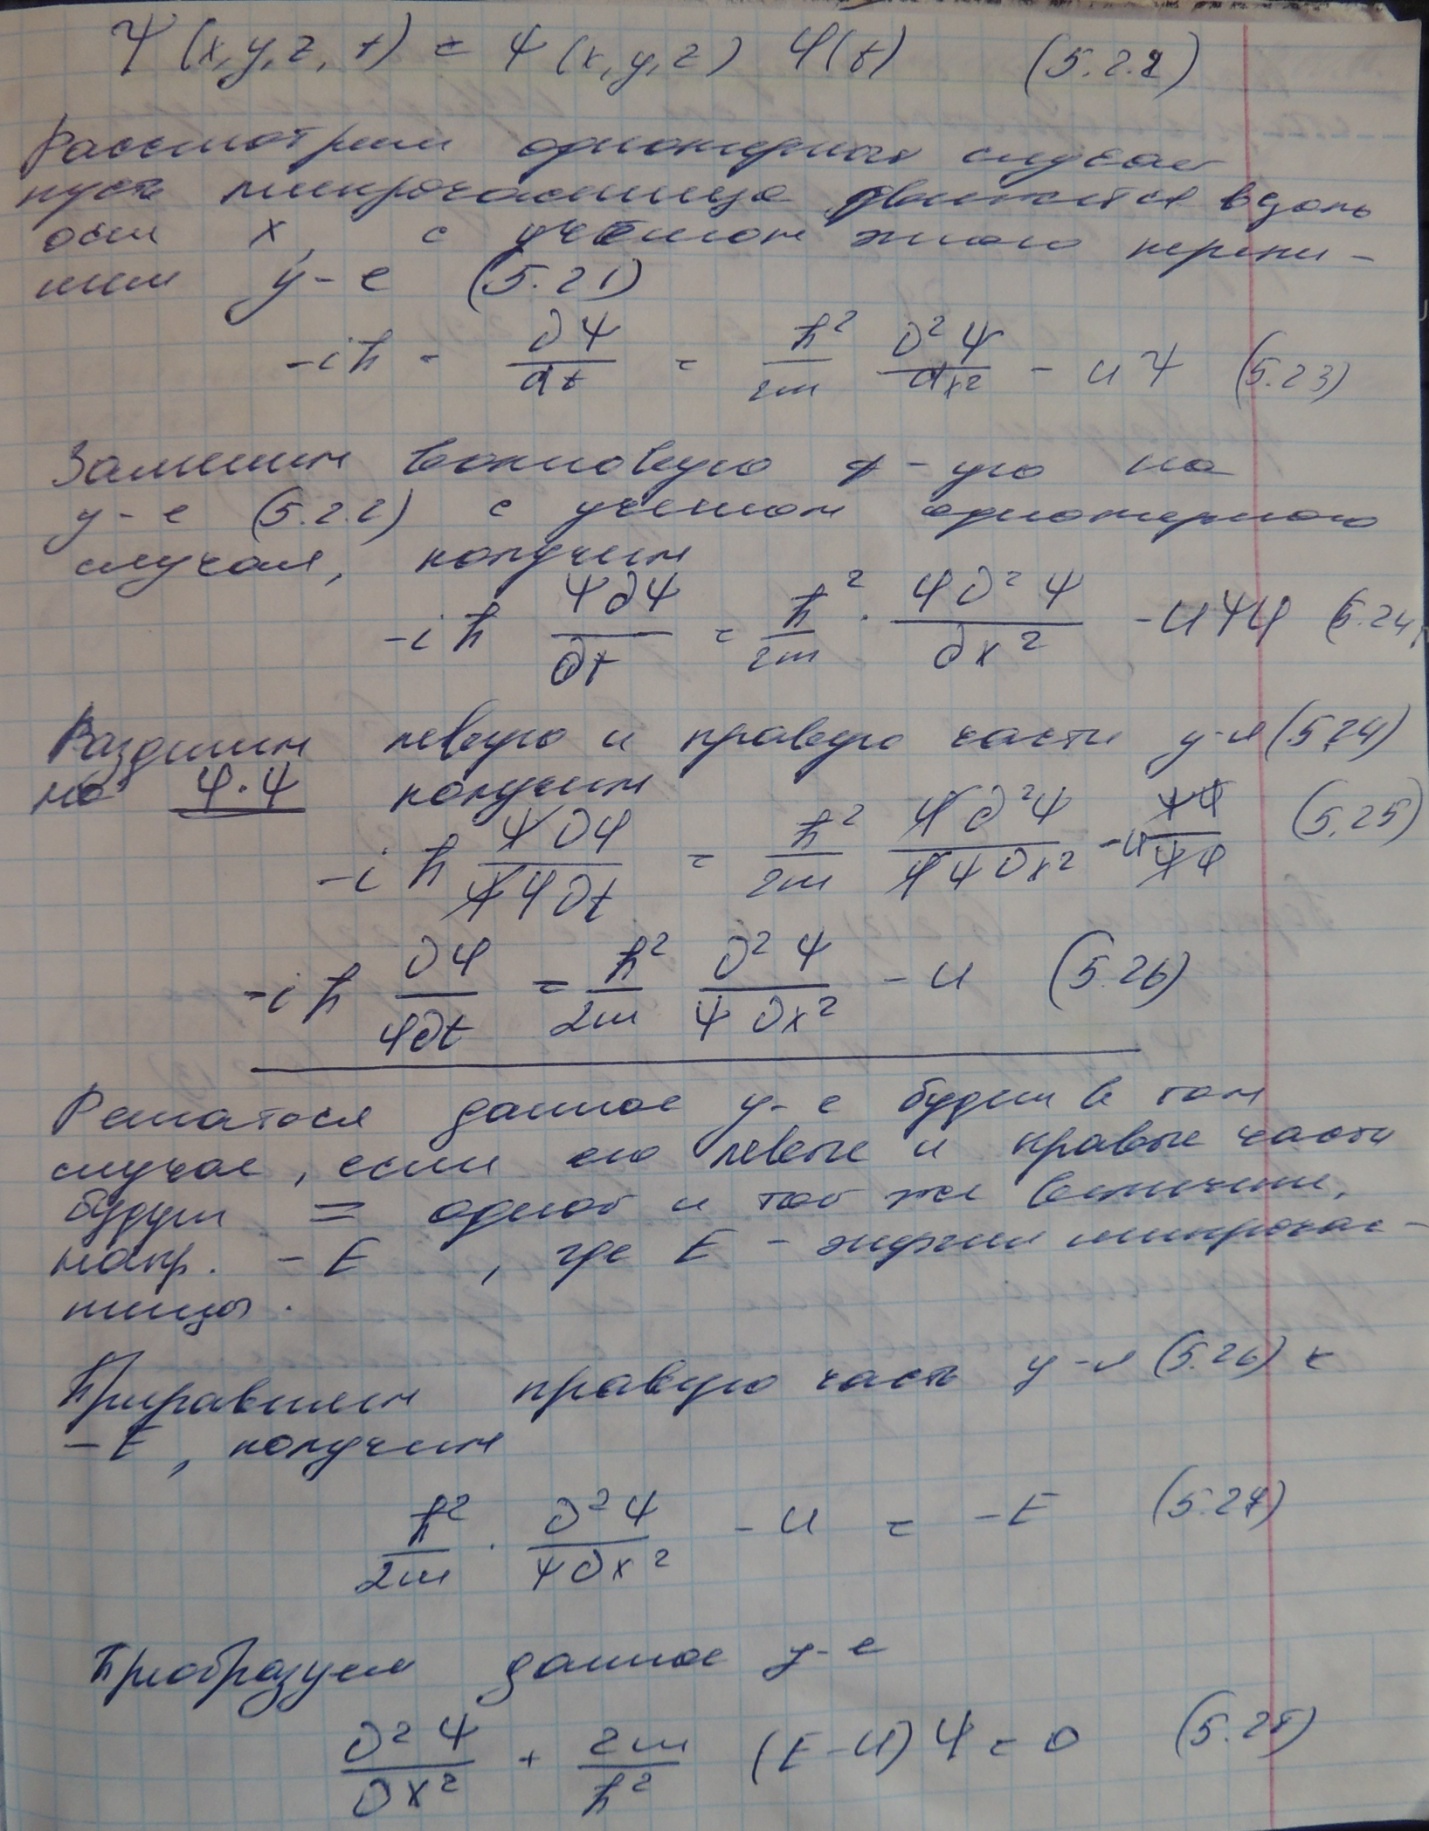 Ψ(x,y,z,t) = ψ(x,y,z) φ(t) (5.22)
Рассмотрим одномерный случай
пусть микрочастица движется вдоль
оси x, с учётом этого перепи-
шем у-е (5.21)
-iħ · ∂Ψ/dt = ħ²/2m ∂²Ψ/dx² - UΨ (5.23)
Заменим волновую ф-ую на
у-е (5.22) с учетом одномерного
случая, получим
-iħ ψ∂φ/∂t = ħ²/2m · φ∂²ψ/∂x² - Uψφ (5.24)
Разделим левую и правую части у-я (5.24)
на φ·ψ получим
-iħ ψ∂φ/ψφ∂t = ħ²/2m φ∂²ψ/φψ∂x² - U ψφ/ψφ (5.25)
-iħ ∂φ/φ∂t = ħ²/2m ∂²ψ/ψ∂x² - U (5.26)
Решаться данное у-е будет в том
случае, если его левые и правые части
будут = одной и той же величине,
напр. -E, где E - энергия микрочас-
тицы.
Приравняем правую часть у-я (5.26) к
-E, получим
ħ²/2m · ∂²ψ/ψ∂x² - U = -E (5.27)
Преобразуем данное у-е
∂²ψ/∂x² + 2m/ħ² (E-U)ψ = 0 (5.28)